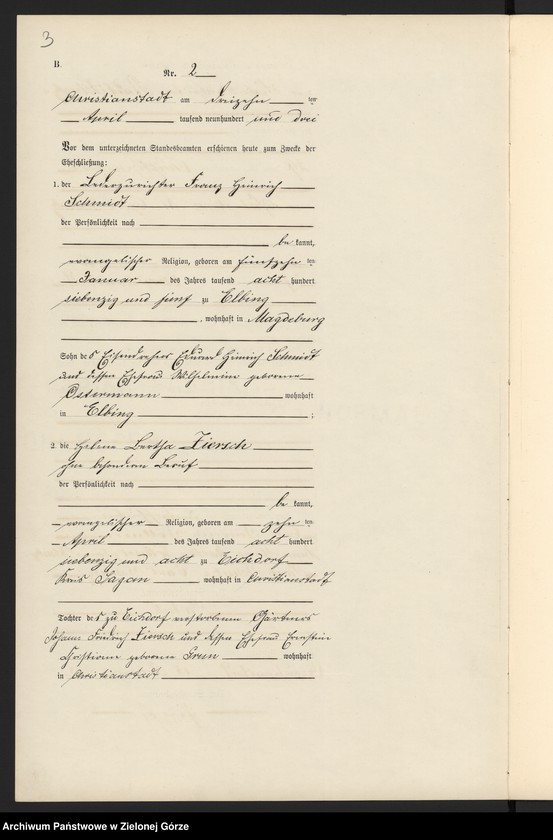 3
B.
Nr. 2
Christianstadt am dreizehn ten
April tausend neunhundert und drei
Vor dem unterzeichneten Standesbeamten erschienen heute zum Zwecke der
Eheschließung:
1. der Lederzurichter Franz Heinrich
Schmidt
der Persönlichkeit nach
be kannt,
evangelischer Religion, geboren am fünfzehn ten
Januar des Jahres tausend acht hundert
siebenzig und fünf zu Elbing
, wohnhaft in Magdeburg
Sohn des Eisendrehers Eduard Heinrich Schmidt
und dessen Ehefrau Wilhelmine geborene
Ostermann wohnhaft
in Elbing ;
2. die Helene Bertha Ziersch
ohne besonderen Beruf
der Persönlichkeit nach
be kannt,
evangelischer Religion, geboren am zehn ten
April des Jahres tausend acht hundert
siebenzig und acht zu Eichdorf
Kreis Sagan wohnhaft in Christianstadt
Tochter des zu Eichdorf verstorbenen Gärtners
Johann Friedrich Ziersch und dessen Ehefrau Ernestine
Christiane geborene wohnhaft
in Christianstadt
Archiwum Państwowe w Zielonej Górze